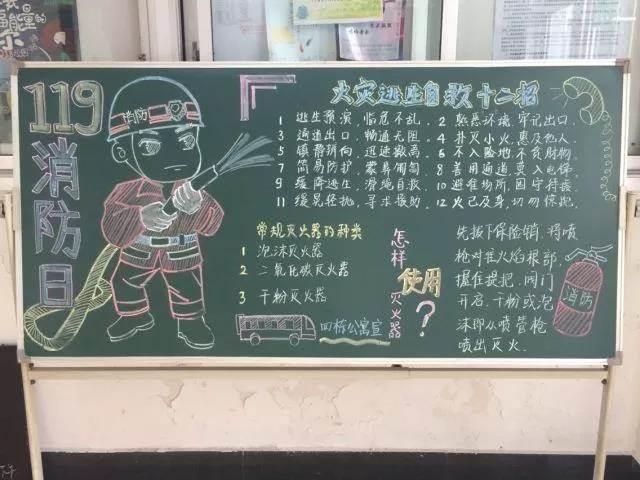 119
消防日
消防
火灾逃生自救十二招
1 逃生预演,临危不乱.
2 熟悉环境,牢记出口.
3 通道出口,畅通无阻.
4 扑灭小火,惠及他人.
5 镇静辨向,迅速撤离.
6 不入险地,不贪财物.
7 简易防护,蒙鼻匍匐
8 善用通道,莫入电梯.
9 缓降逃生,滑绳自救.
10 避难场所,固守待援
11 缓晃轻抛,寻求援助.
12 火已及身,切勿惊跑.
常规灭火器的种类
1 泡沫灭火器
2 二氧化碳灭火器
3 干粉灭火器
四栋公寓宣
怎样
使用
灭火器
?
先拔下保险销,将喷
枪对准火焰根部
握住提把,阀门
开启,干粉或泡
沫即从喷管枪
喷出灭火.
消防